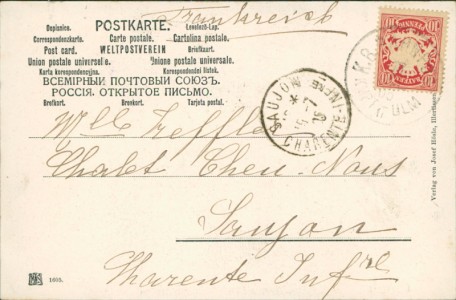 Frankreich
POSTKARTE.
Dopisnice. Levelező-Lap.
Correspondenzkarte. Carte postale. Cartolina postale.
Post card. WELTPOSTVEREIN Briefkaart.
Union postale universelle. Unione postale universale.
Karta korespondencyjna. Korespondenční lístek.
ВСЕМІРНЫЙ ПОЧТОВЫЙ СОЮЗЪ.
РОССІЯ. ОТКРЫТОЕ ПИСЬМО.
Brefkort. Brevkort. Tarjeta postal.
SAUJON
CHARENTE-INFRE
BAYERN
10
ULM
Mlle Treffler
Chalet Chen-Nous
Saujon
Charente Infre
1605.
Verlag von Josef